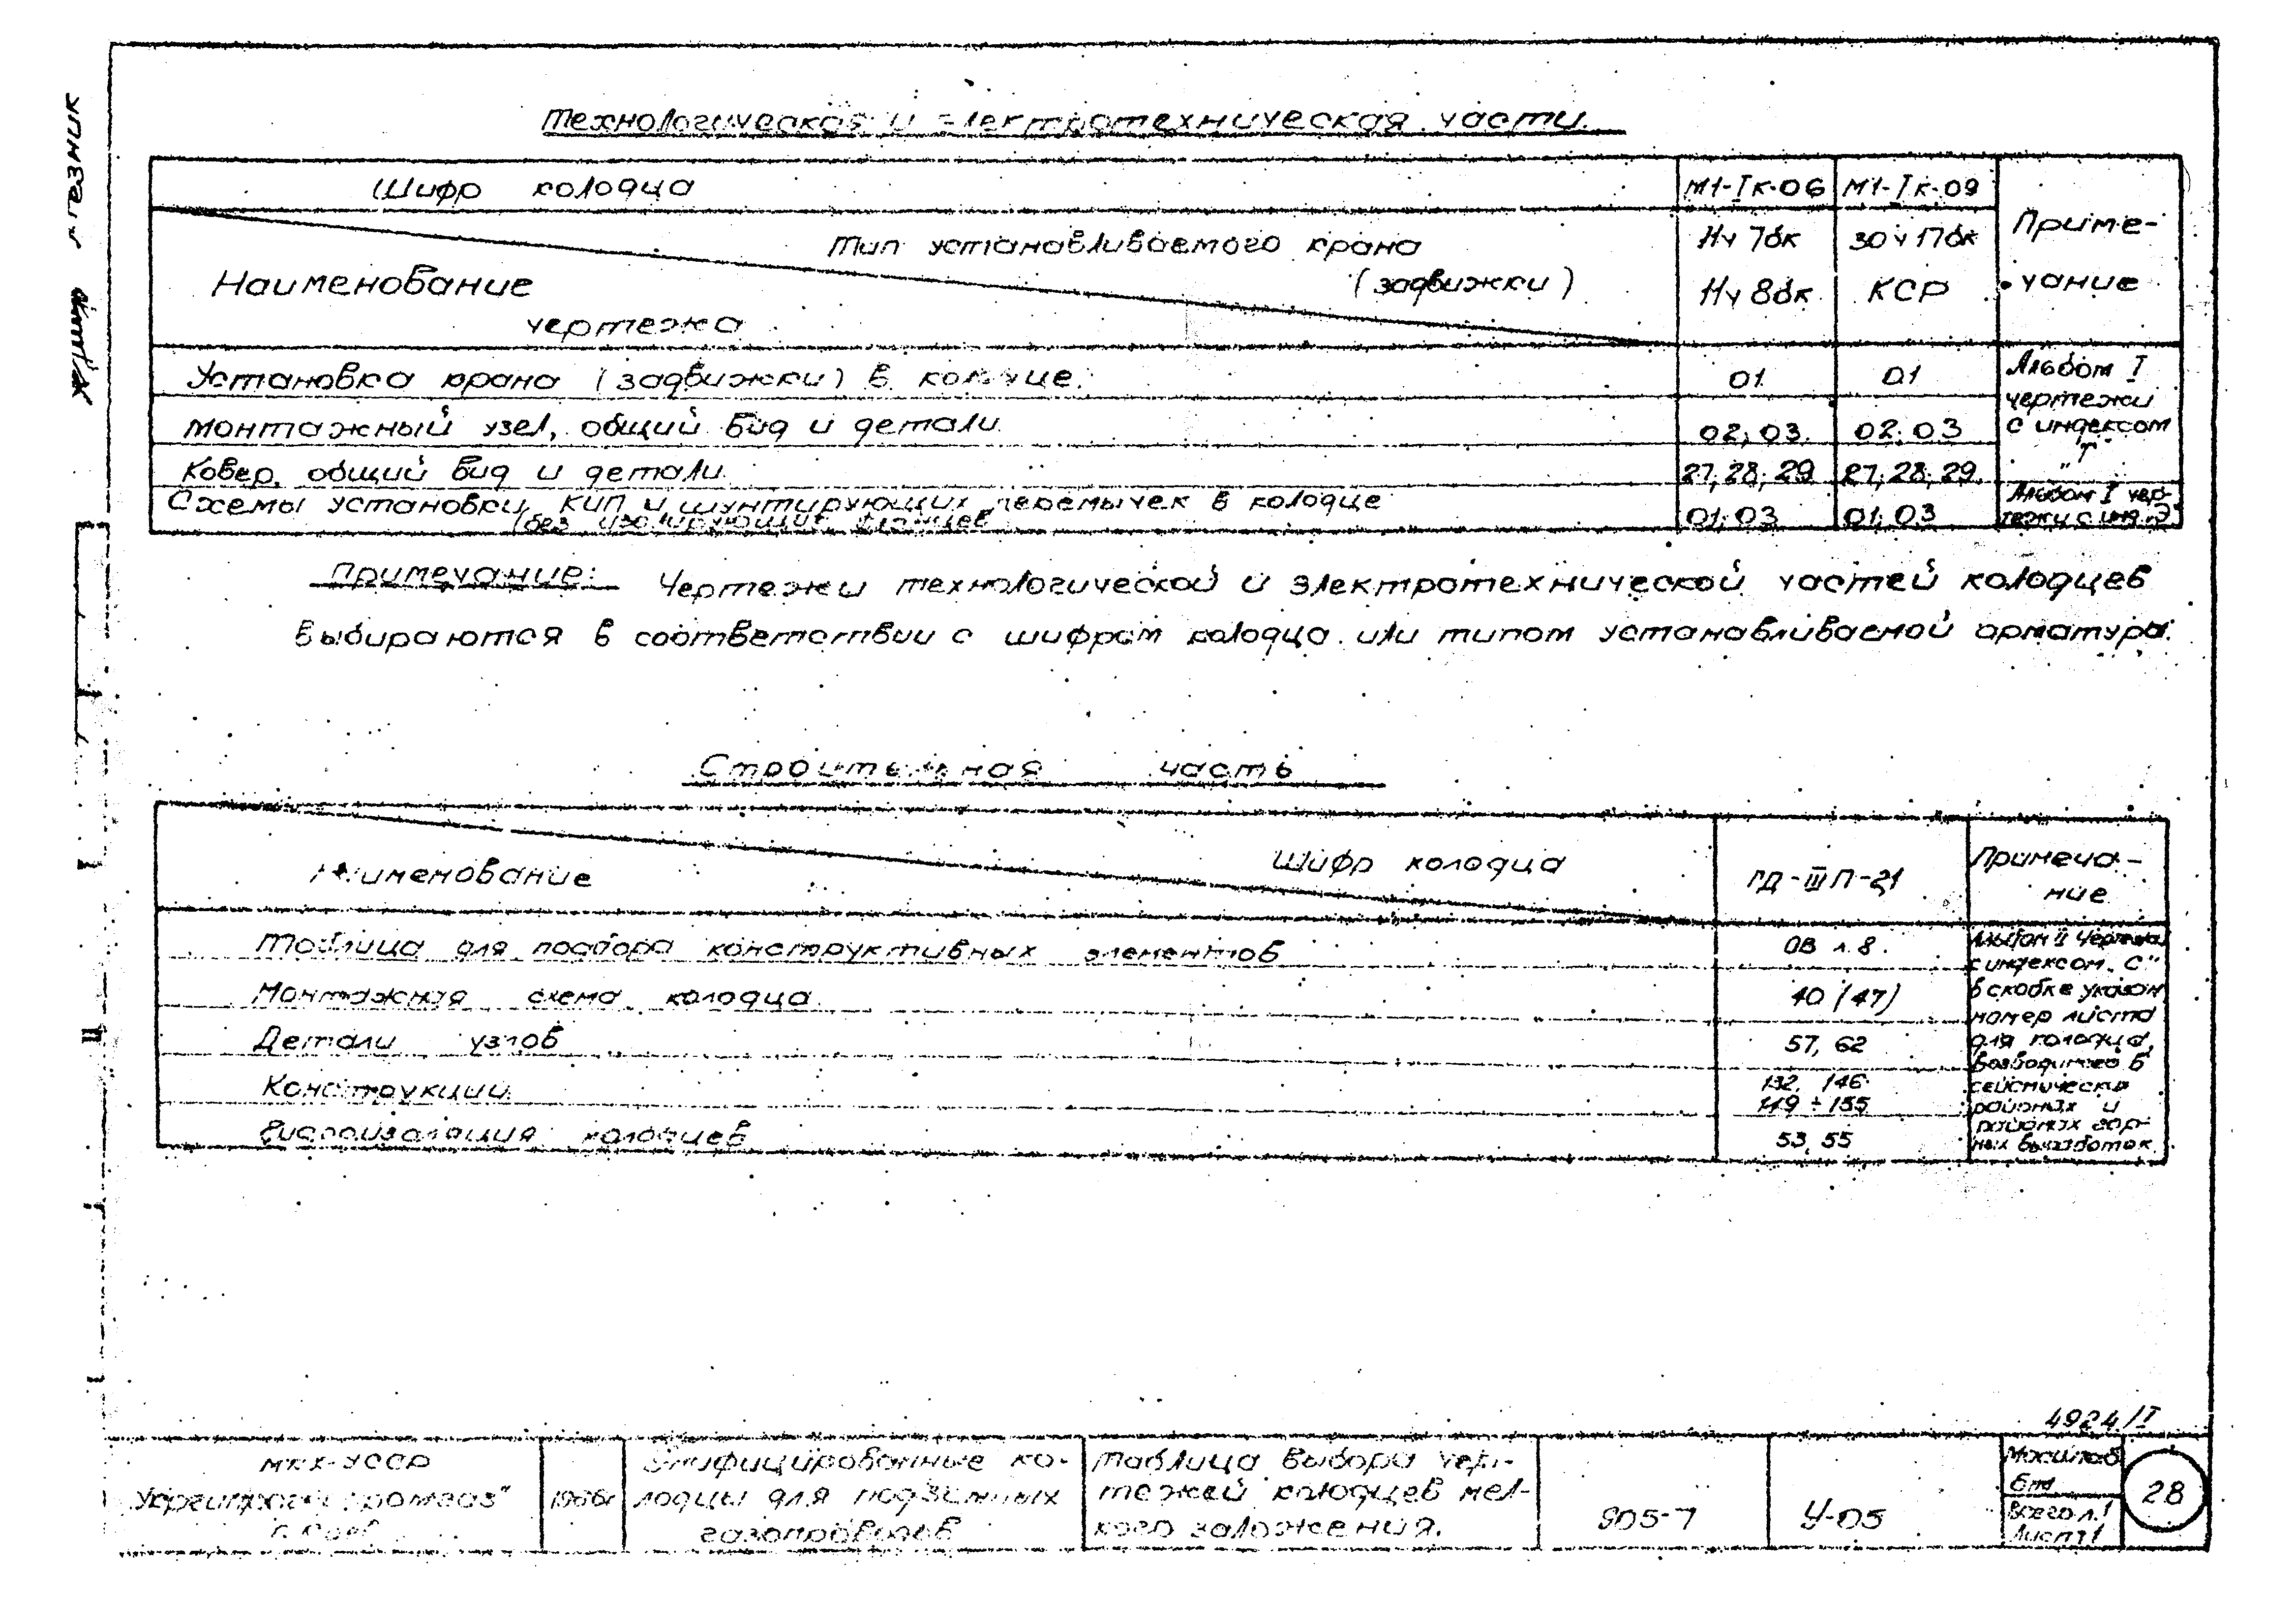 Технологическая и электротехническая части.
Шифр колодца
М1-Iк-06 М1-Iк-09
Приме-
чание
Тип устанавливаемого крана
(задвижки)
Наименование
чертежа
11ч 7бк 30ч 17бк
11ч 8бк КСР
Установка крана (задвижки) в колодце. 01 01
Монтажный узел, общий вид и детали. 02; 03. 02; 03
Ковер, общий вид и детали. 27; 28; 29 27; 28; 29.
Альбом I
чертежи
с индексом
"Т"
Схемы установки КИП и шунтирующих перемычек в колодце
(без изолирующих фланцев 01; 03 01; 03
Альбом I чер-
тежи с инд. "Э"
Примечание: Чертежи технологической и электротехнической частей колодцев
выбираются в соответствии с шифром колодца или типом устанавливаемой арматуры.
Строительная часть
Шифр колодца
Наименование
ГД-III П-21
Примеча-
ние
Таблица для подбора конструктивных элементов ОВ л. 8.
Монтажная схема колодца 40 (47)
Детали узлов 57, 62
Конструкции 132, 146
149 ÷ 155
Гидроизоляция колодцев 53, 55
Альбом II Чертежи
с индексом "С"
в скобке указан
номер листа
для колодца,
возводимого в
сейсмических
районах и
районах гор-
ных выработок
4924/I
МКХ-УССР
г. Киев
Унифицированные ко-
лодцы для подземных
газопроводов
Таблица выбора чер-
тежей колодцев мел-
кого заложения.
905-7
У-05
Масштаб
б/м
Всего л. 1
Лист 1
28